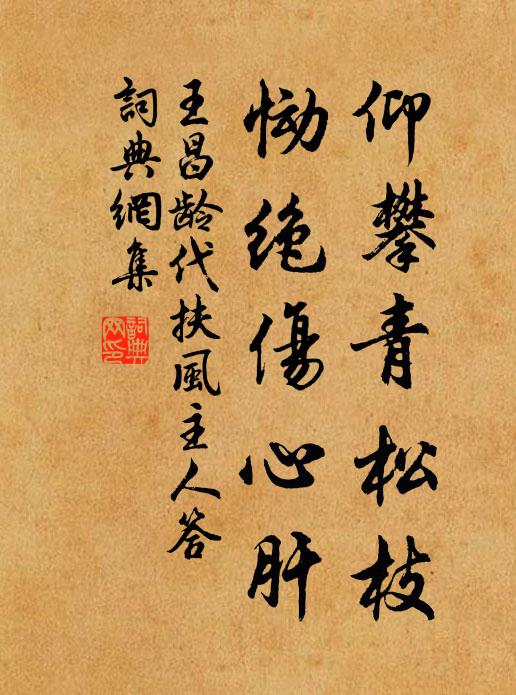 仰攀青松枝
恸絶傷心肝
王昌龄代扶風主人答
詞典網集
詞典网印